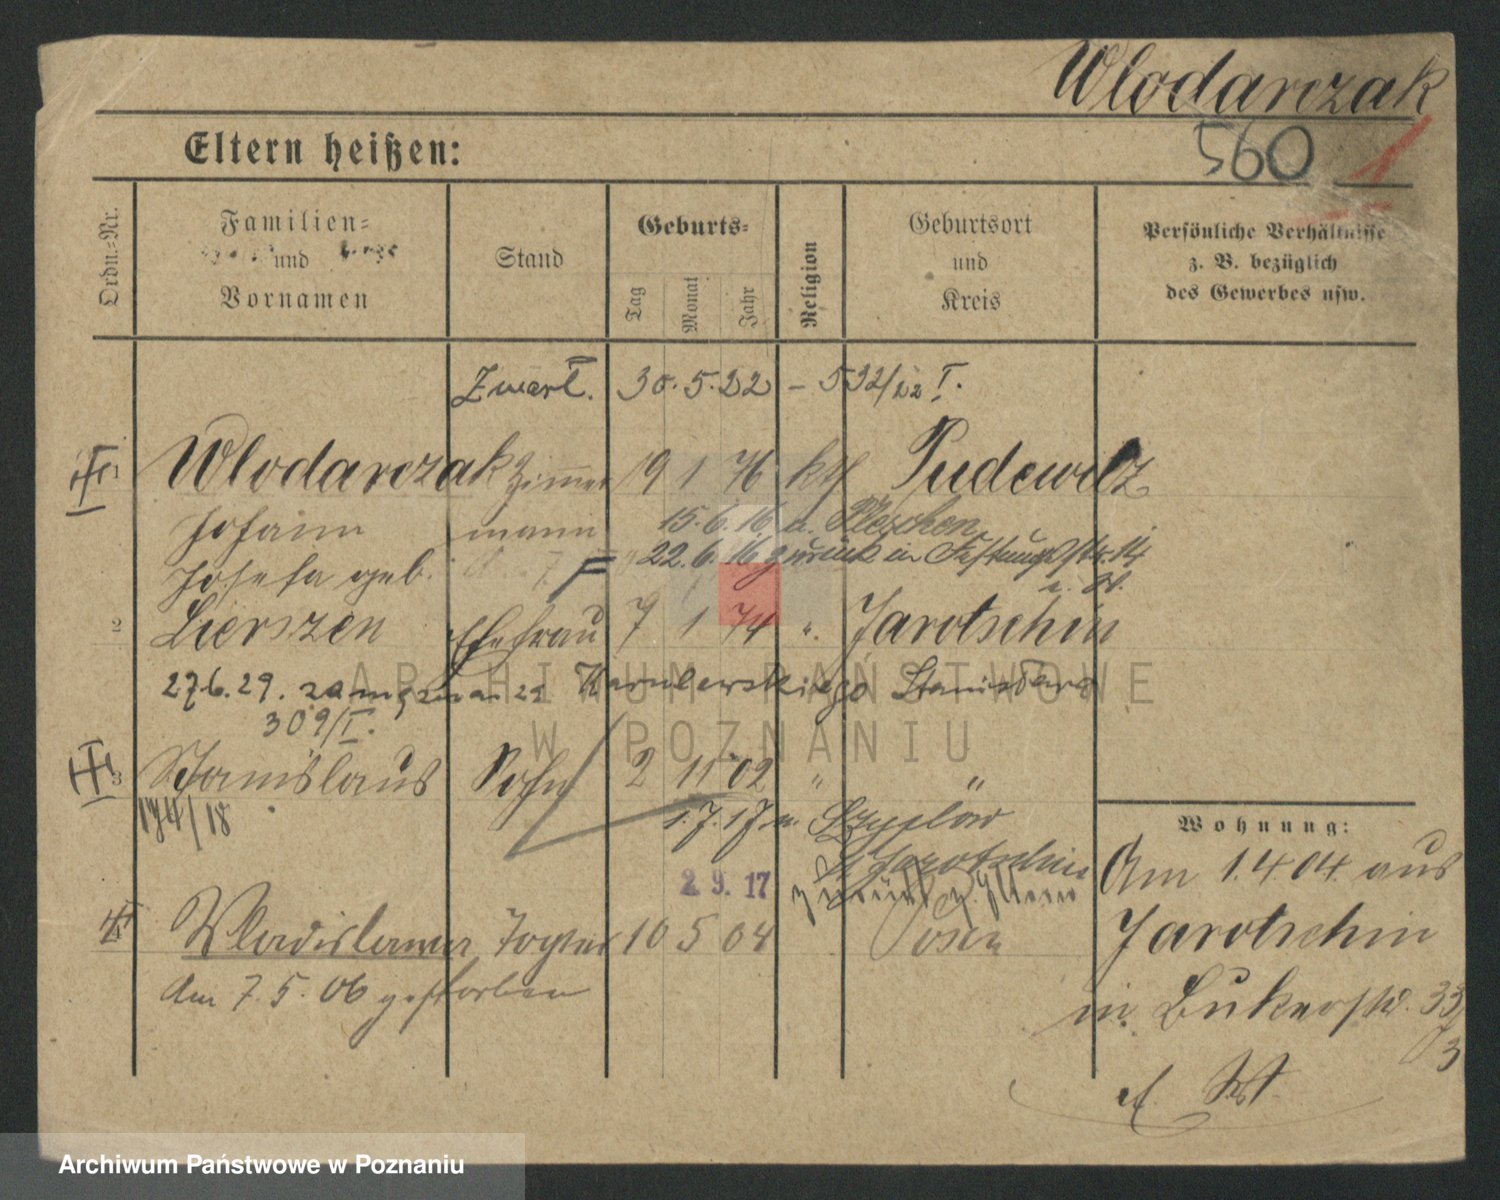 Wlodarczak
560 1
Eltern heißen:
Ordn.=Nr.
Familien=
und
Vornamen
Stand
Geburts=
Tag
Monat
Jahr
Religion
Geburtsort
und
Kreis
Persönliche Verhältnisse
z. B. bezüglich
des Gewerbes usw.
Zmarł. 30.5.22 – 532/22 I.
1 Wlodarczak Zimmer 19 1 76 kth Pudewitz
Johann mann 15.6.16 n. Pleschen
Josefa geb. 22.6.16 zurück in Festungsstr. 14
u. W.
2 Lierszen Ehefrau 7 1 74 ". Jarotschin
27.6.29. za mąż Stanisława
309/I.
3 Stanislaus Sohn 2 11 02 " "
174/18 1.7.17 n.
Jarotschin
2 9. 17 zurück z. Eltern
4 Wladislawa Tochter 10 5 04 Posen
Am 7.5.06 gestorben
Wohnung:
Am 1.4.04 aus
Jarotschin
in Bukerstr. 33
3
ARCHIWUM PAŃSTWOWE
W POZNANIU
Archiwum Państwowe w Poznaniu